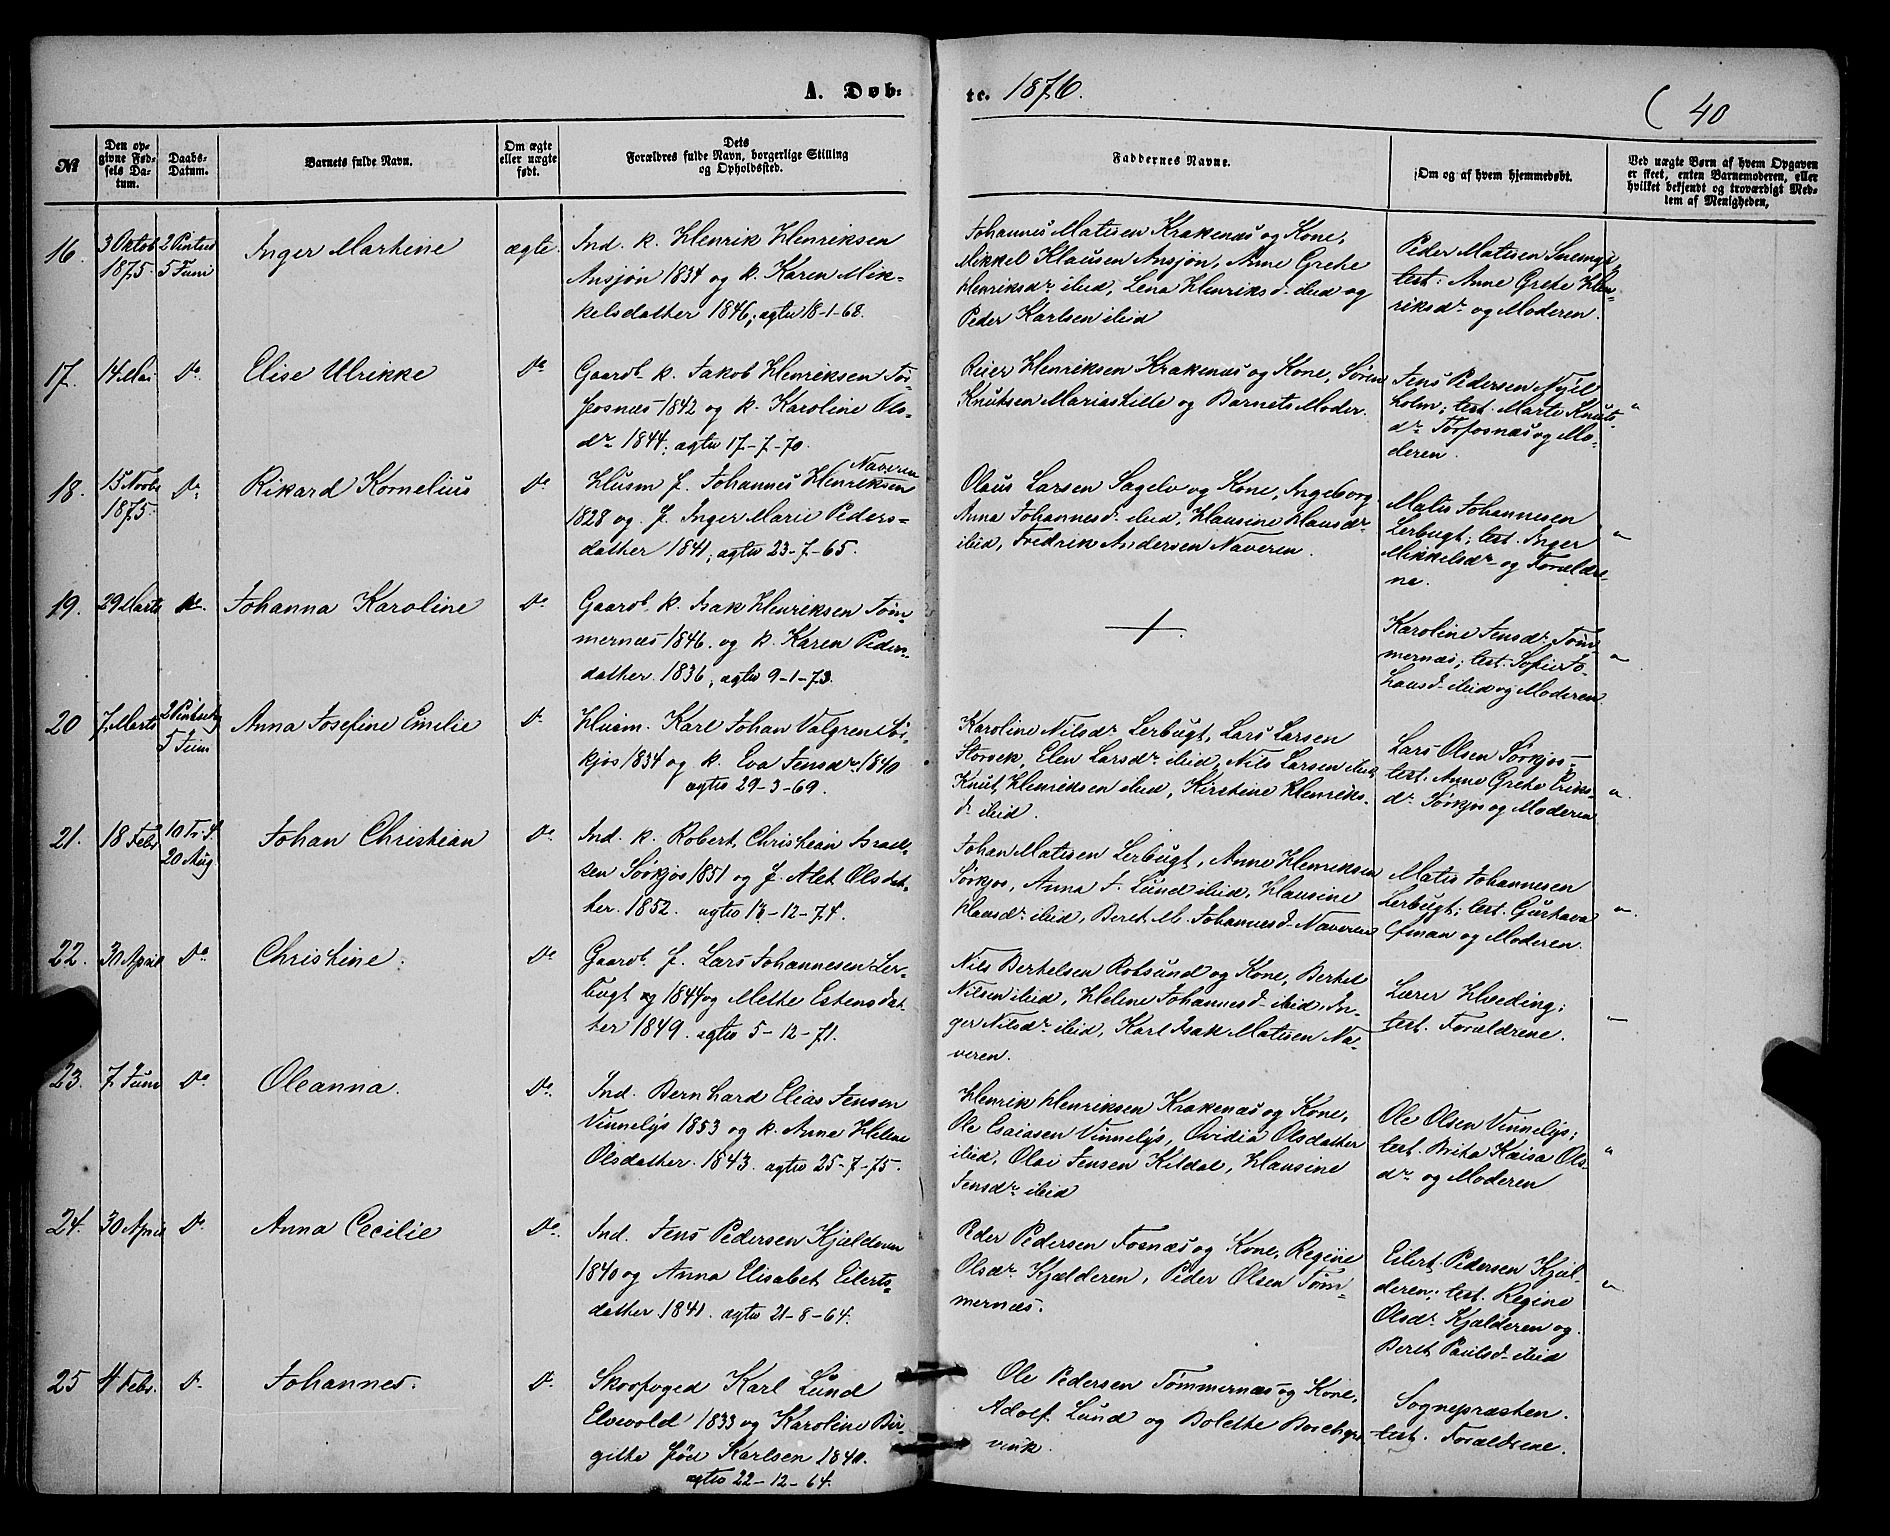 A. Døb-
te. 1876.
40
№
Den op-
givne Fød-
sels Da-
tum.
Daabs-
Datum.
Barnets fulde Navn.
Om ægte
eller uægte
født.
Dets
Forældres fulde Navn, borgerlige Stilling
og Opholdssted.
Faddernes Navne.
Om og af hvem hjemmedøbt.
Ved uægte Børn af hvem Opgaven
er skeet, enten Barnemoderen, eller
hvilket bekjendt og troværdigt Med-
lem af Menigheden.
16.
3 Oktob
1875.
5 Juni
Inger Martine
ægte.
Ind. k. Henrik Henriksen
Ansjøn 1834 og k. Karen Mik-
kelsdatter 1846; agtv 18-1-68.
Johannes Matisen Krakenæs og Kone,
Mikkel Klausen Ansjøn, Anne Grete
Henriksdr ibid, Lena Henriksd. ibid og
Peder Karlsen ibid
Peder Matisen
test: Anne Grete Hen-
riksdr og Moderen.
17.
14 Mai
Do.
Elise Ulrikke
Do
Gaardb. k. Jakob Henriksen Tor-
fosnæs 1842 og k. Karoline Ols-
dr 1844; agtv 17-7-70.
Reier Henriksen Krakenæs og Kone, Søren
Knutsen Mariashille og Barnets Moder.
Jens Pedersen
holm; test. Marte Knuts-
dr Torfosnæs og Mo-
deren.
18.
15 Novbr
1875.
Do.
Rikard Kornelius
Do
Naveren
Husm f. Johannes Henriksen
1828 og f. Inger Marie Peders-
datter 1841, agtv 23-7-65.
Olaus Larsen Sagelv og Kone, Ingeborg
Anna Johannesd. ibid, Hansine Hansdr
ibid, Fredrik Andersen Naveren.
Matis Johannesen
Lerbugt; test. Inger
Mikkelsdr og Forældre-
ne.
19.
29 Marts
Do.
Johanna Karoline
Do
Gaardb. k. Isak Henriksen Tøm-
mernæs 1846. og k. Karen Peders-
datter 1836, agtv 9-1-73.
Karoline Jensdr Tøm-
mernæs; test. Sofie Jo-
hansd. ibid og Moderen
20
7 Marts
5 Juni
Anna Josefine Emilie
Do
Husm. Karl Johan Valgren Sør-
kjos 1834 og k. Eva Jensdr 1840
agtv 29-3-69.
Karoline Nilsdr Lerbugt, Lars Larsen
Storvek, Elen Larsdr ibid, Nils Larsen ibid,
Knut Henriksen ibid, Kirstine Henriks-
d. ibid.
Lars Olsen Sørkjos-
test. Anne Grete Eriks-
dr Sørkjos og Moderen
21.
18 Febr
20 Aug
Johan Christian
Do.
Ind. k. Robert Christian Israel-
sen Sørkjos 1851 og f. Alet Olsdat-
ter. 1852. agtv 13-12-74.
Johan Matisen Lerbugt, Anne Henriksen
Sørkjos, Anna J. Lund ibid, Hansine
Hansdr ibid, Beret M. Johannesd. Naveren
Matis Johannesen
Lerbugt; test. Gustava
og Moderen.
22.
30 April
Do
Christine.
Do
Gaardb. f. Lars Johannesen Ler-
bugt 1844 og Mette Estensdat-
ter 1849. agtv 5-12-71.
Nils Bertelsen Rotsund og Kone, Bertel
Nilsen ibid, Helene Johannesd. ibid, In-
ger Nilsdr ibid, Karl Isak Matisen Na-
veren.
Lærer Hveding;
test. Forældrene.
23.
7 Juni
Do
Oleanna.
Do.
Ind. Bernhard Elias Jensen
Vinnelys 1853 og k. Anne Helene
Olsdatter. 1843. agtv 25-7-75.
Henrik Henriksen Krakenæs og Kone,
Ole Esaiasen Vinnelys, Ovidia Olsdatter
ibid, Olai Jensen Kildal, Hansine
Jensdr ibid
Ole Olsen Vinnelys;
test. Brita Kaisa Ols-
dr og Moderen
24.
30 April
Do.
Anna Cecilie
Do.
Ind. Jens Pedersen Kjælderen
1840 og Anna Elisabet Eilerts-
datter. 1841. agtv 21-8-64.
Peder Pedersen Fosnæs og Kone, Regine
Olsdr Kjælderen, Peder Olsen Tøm-
mernæs.
Eilert Pedersen Kjæl-
deren; test. Regine
Olsdr Kjælderen og
Beret Paulsd. ibid
25
4 Febr.
Do.
Johannes.
Do.
Skovfoged Karl Lund
Elvevold 1833 og Karoline Bir-
gitte Karlsen 1840.
agtv 22-12-64.
Ole Pedersen Tømmernæs og Kone,
Adolf Lund og Bolette
vink.
Sognepræsten.
test. Forældrene.